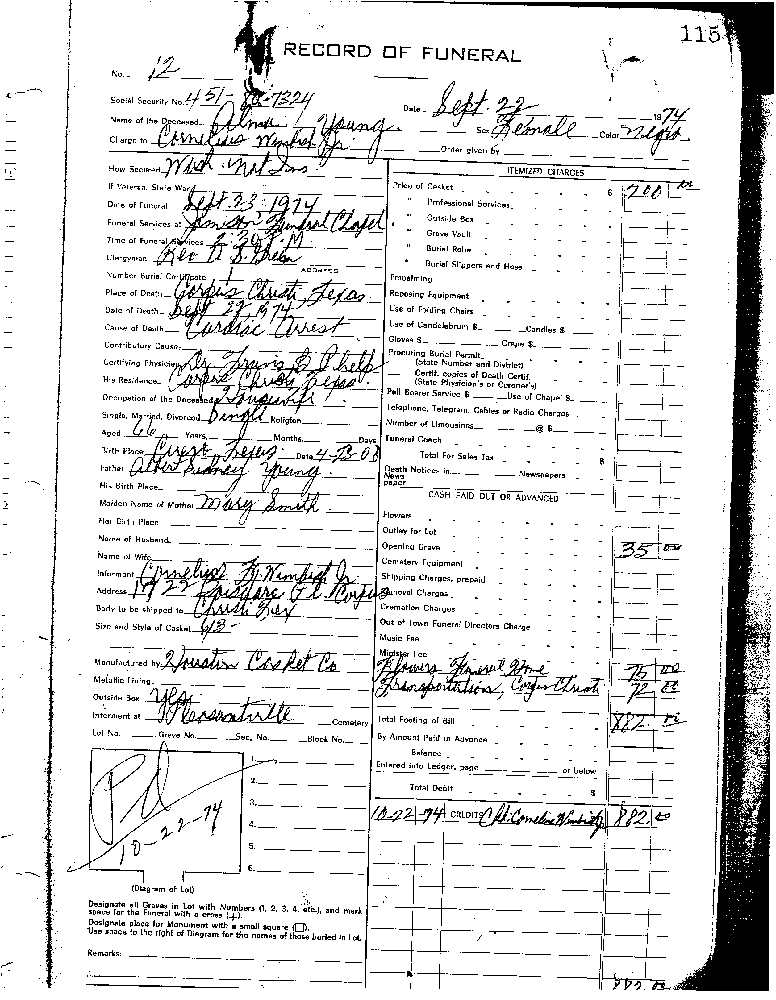 115
RECORD OF FUNERAL
No. 12
Social Security No. 451- -7324
Date Sept. 22 1974
Name of the Deceased Alma Young
Sex Female Color Negro
Charge to Cornelius Wimbish Jr.
Order given by
How Secured Wish. not Ins
If Veteran, State War
Date of Funeral Sept 23 1974
Funeral Services at Jamison Funeral Chapel
Time of Funeral Services 2:30 P.M
Clergyman Rev A S. Green
ADDRESS
Number Burial Certificate 1
Place of Death Corpus Christi, Texas
Date of Death Sept 22, 1974
Cause of Death Cardiac Arrest
Contributory Cause
Certifying Physician Dr. Travis Phelp
His Residence Corpus Christi Texas
Occupation of the Deceased Housewife
Single, Married, Divorced Single Religion
Aged 66 Years, Months, Days
Birth Place Texas Date 4-23-08
Father Albert Sidney Young
His Birth Place
Maiden Name of Mother Mary Smith
Her Birth Place
Name of Husband
Name of Wife
Informant Cornelius Wimbish Jr
Address 1722 Pl. Corpus
Body to be shipped to Christi Tex
Size and Style of Casket 6/3-
Manufactured by Houston Casket Co
Metallic Lining
Outside Box Yes
Interment at Pleasantville Cemetery
Lot No. Grave No. Sec. No. Block No.
Pd
10-22-74
1.
2.
3.
4.
5.
6.
(Diagram of Lot)
Designate all Graves in Lot with Numbers (1, 2, 3, 4, etc.), and mark
space for the Funeral with a cross (+).
Designate place for Monument with a small square (□).
Use space to the right of Diagram for the names of those buried in Lot.
Remarks:
ITEMIZED CHARGES
Price of Casket $ 700 00
" Professional Services
" Outside Box
" Grave Vault
" Burial Robe
" Burial Slippers and Hose
Embalming
Reposing Equipment
Use of Folding Chairs
Use of Candelabrum $ Candles $
Gloves $ Crape $
Procuring Burial Permit
(State Number and District)
Certif. copies of Death Certif.
(State Physician's or Coroner's)
Pall Bearer Service $ Use of Chapel $
Telephone, Telegram, Cables or Radio Charges
Number of Limousines @ $
Funeral Coach
Total For Sales Tax $
Death Notices in Newspapers
News
paper
CASH PAID OUT OR ADVANCED
Flowers
Outlay for Lot
Opening Grave 35 00
Cemetery Equipment
Shipping Charges, prepaid
Removal Charges
Cremation Charges
Out of Town Funeral Directors Charge
Music Fee
Minister Fee
Flowers Funeral Home 75 00
Transportation, Corpus Christi 72 00
Total Footing of Bill 882 00
By Amount Paid in Advance
Balance
Entered into Ledger, page or below
Total Debit $
10-22-74 CREDITS Ck. Cornelius Wimbish Jr 882 00
882 00